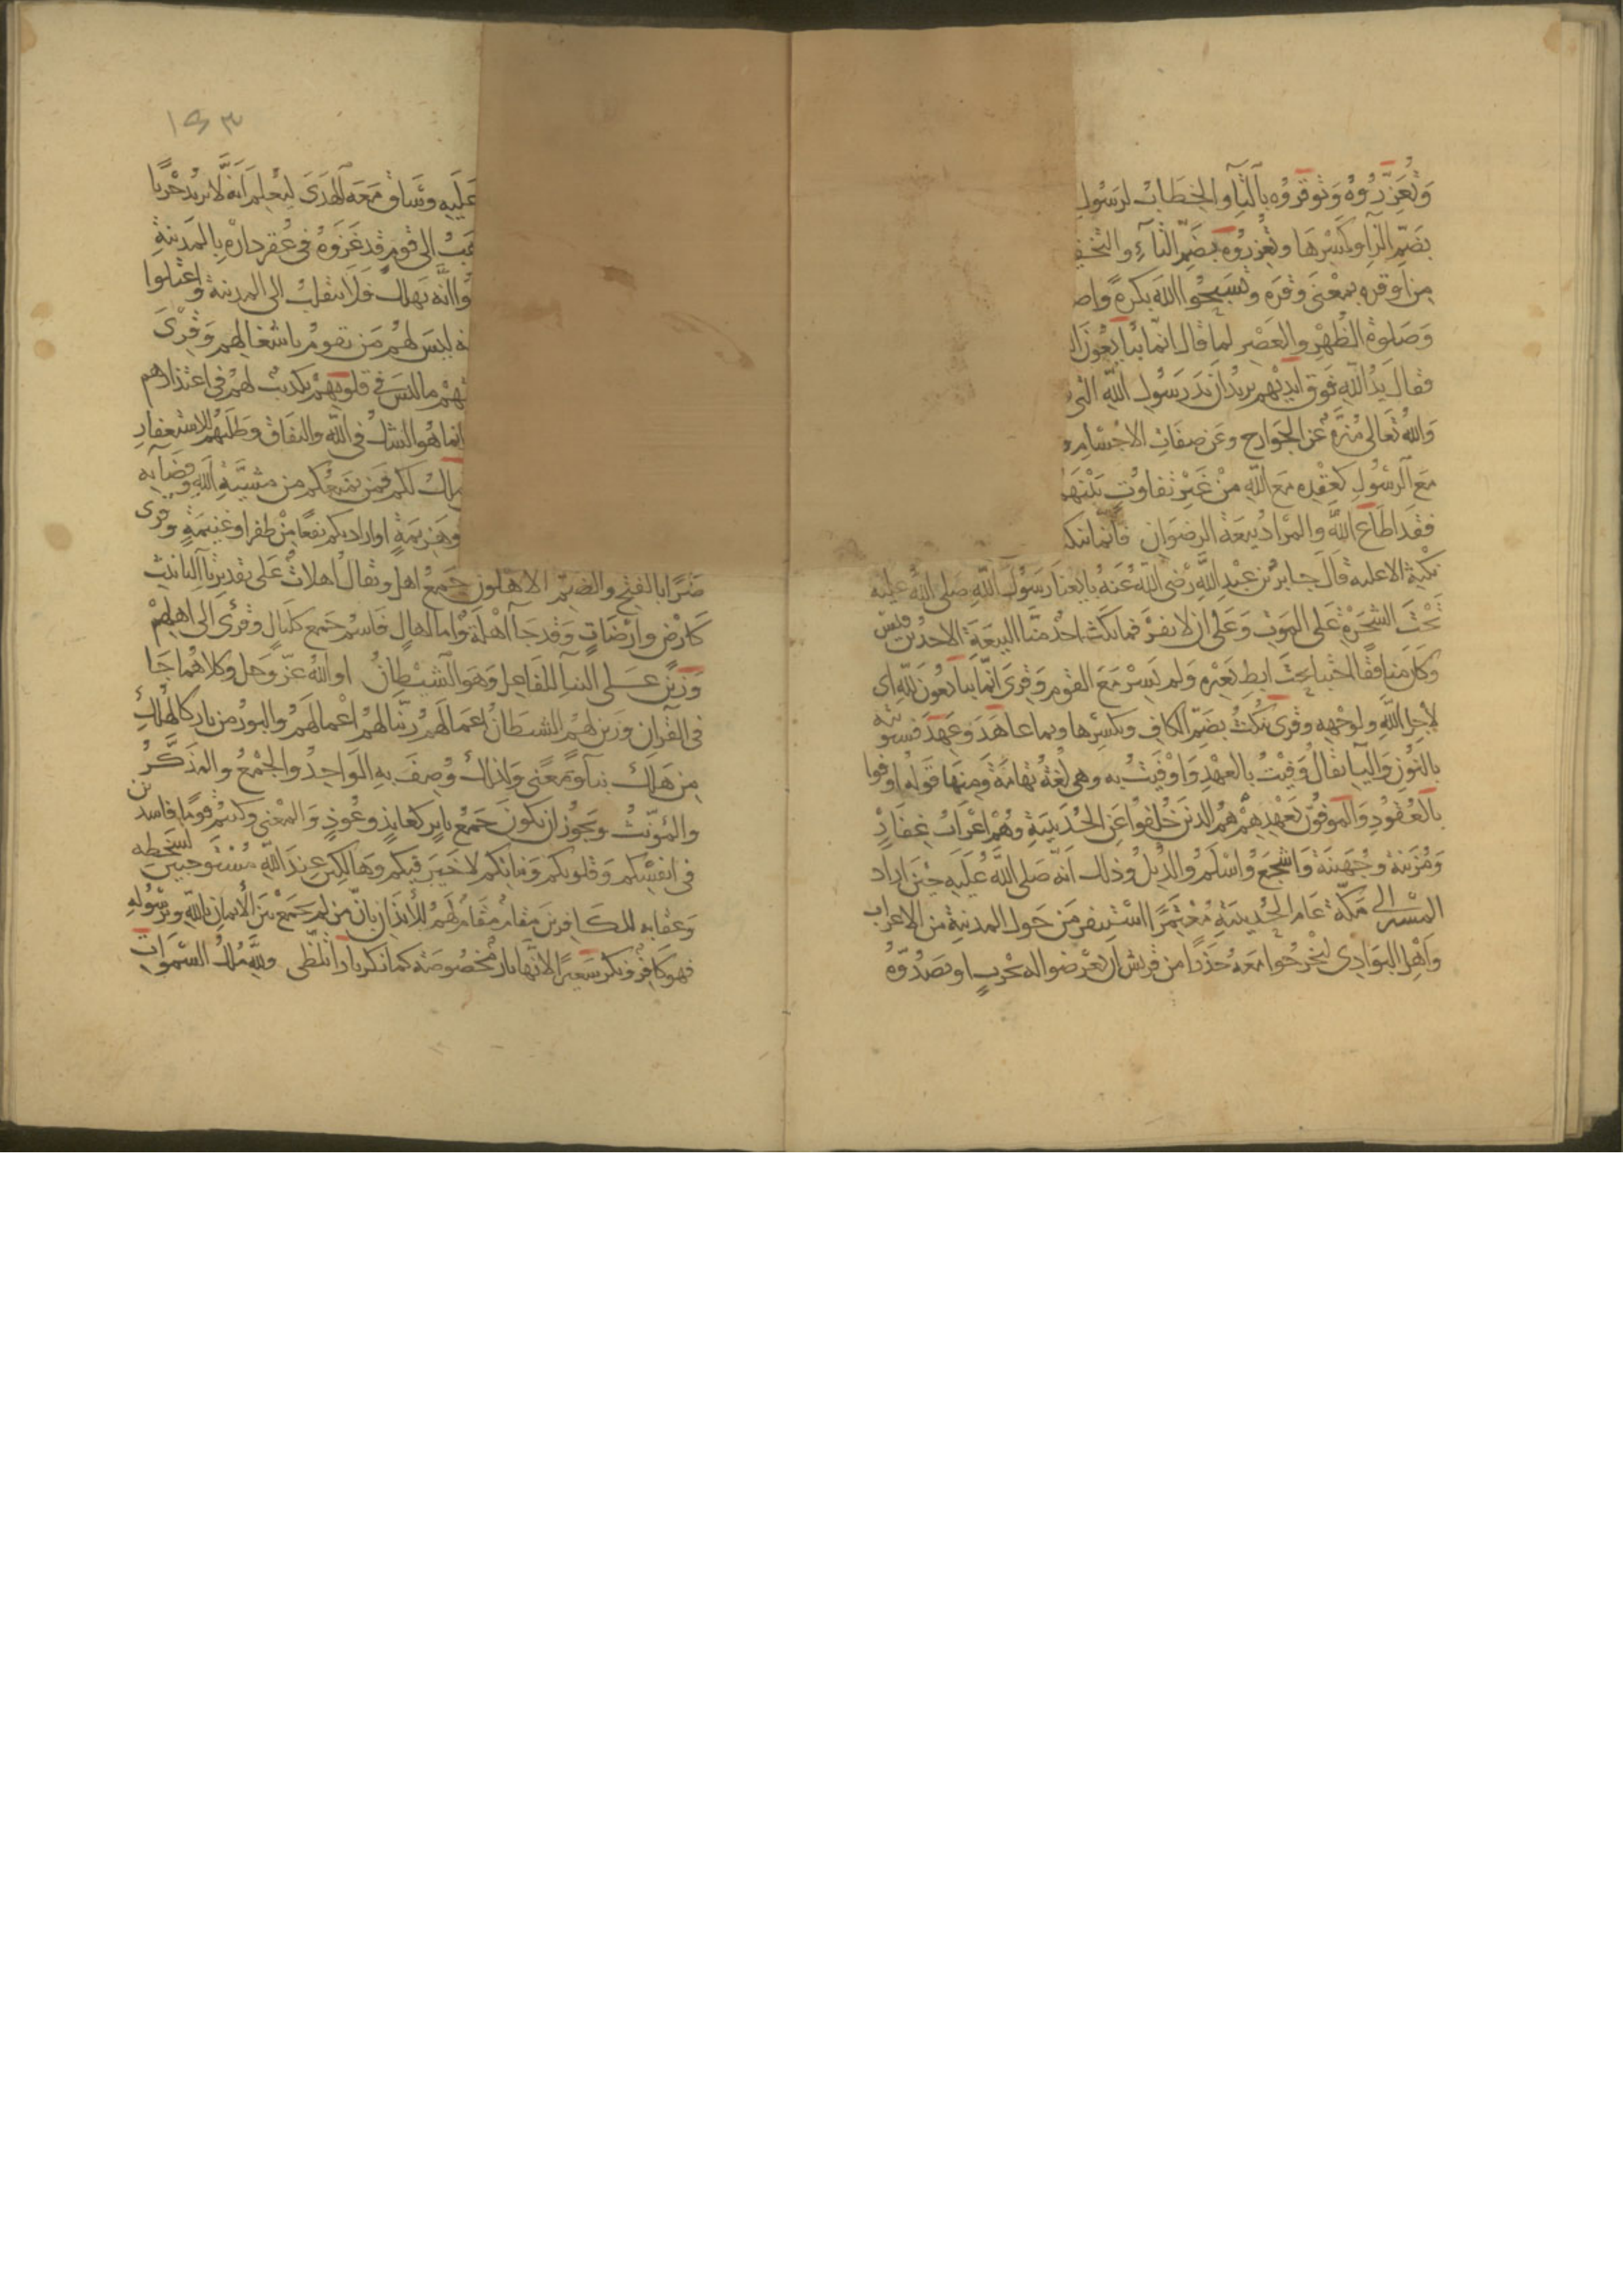 وَتُعَزِّرُوهُ وَتُوَقِّرُوهُ بِالتَّاءِ والخِطَابُ لرَسُولِ
بضَمِّ الزَّاي وكَسْرِهَا وتُعْزِرُوه بضَمِّ التَّاءِ والتخفيـ
مِن اَوقره بمعْنَى وَقَّرَه وتُسَبِّحُوا اللّهَ بُكرةً واصـ
وَصَلوة الظُهْرِ والعَصْرِ لما قال انّما يُبَايِعُونَ ا
فقال يَدُ اللَّهِ فَوق ايدِيْهم يريدُ ان يَدَ رَسُولِ اللَّهِ التى
وَاللَّهُ تَعَالى مُنزَّهٌ عَن الجَوَارِح وعَن صِفَاتِ الاجْسَامِ
مَع الرسُولِ كَعَقْدِه مَعَ اللَّهِ مِنْ غَيْرِ تفاوُتٍ بَيْنَهُمَا
فقَد اَطَاعَ اللَّهَ والمرَادُ بيعَة الرضوَانِ فانما ينكـ
نكثِه الا عليه قالَ جابرُ بن عبْدِ اللَّهِ رَضى اللَّهُ عَنهُ بايعنا رَسُولَ اللَّهِ صَلى اللَّهُ عليه
تَحْتَ الشجَرَةِ عَلى المَوْتِ وَعَلى ان لا نفِرَّ فما نَكَثَ اَحَدٌ مِنَّا البَيْعَة الا جدُّ بن قيس
وَكَانَ منَافقًا اختبا تحْتَ ابِطِ بَعِيْرِه وَلم يَسِرْ مَعَ القوم وَقرِى انّما يُبَايعُونَ لِلَّهِ اى
لاَجلِ اللَّهِ ولوجْهِه وقرى يَنكُثُ بضَمِّ الكافِ وبكسْرِها وبما عاهَدَ وَعَهِدَ فسنُوتيه
بالنُّونِ وَاليَا يقالُ وَفَيْتُ بالعَهْدِ وَاوْفَيْتُ به وهى لُغَةُ تهَامَةَ وَمِنهَا قَولُه اوفوا
بالعُقُودِ وَالمُوفُونَ بِعَهْدِهِمْ هُم الذينَ خُلِّفُوا عَنِ الحُدَيْبِيَةِ وهُمْ اَعْرَابُ غِفَارٍ
وَمُزَيْنَة وجُهَيْنَة وَاَشْجَعَ وَاَسْلَمَ والدِّيْلُ وذلك انَّه صَلى اللَّهُ عَلَيْه حِيْنَ اراد
المسْيرَ الى مَكّة عَام الحُدَيْبيَةِ مُعْتَمِرًا اسْتنفر مَن حَول المدينةِ من الاعراب
وَاَهْل البَوَادى ليَخرُجُوا معَهُ حَذَرًا من قريش ان يَعرضوا له بحربٍ او يَصُدُّوهُ
١٩٣
عَلَيه وسَاقَ مَعَهُ الهَدَىَ ليُعْلِمَ اَنهُ لا يريدُ حَرْبًا
هَبُ الى قومٍ قد غَزَوهُ فى عُقر داره بالمَدينةِ
وا انَّه يَهلك فَلا يَنقلبُ الى المدينة وَاعْتلوا
ه ليسَ لهُم مَن يقومُ باشغالهم وَقرِىَ
تهمْ ما ليسَ فى قلوبهِمْ تكذيبٌ لهُم فى اعتذارهم
انما هُو الشكُّ فى اللَّهِ والنفاق وَطلَبُهُم للاسْتغفارِ
يملك لكم فمَن يمنعُكم من مشيَّةِ اللَّهِ وقضَائه
وهَزيمَةٍ او اراد بكم نفعًا مِنْ ظفرٍ او غنِيمَةٍ وقرى
ضَرًّا بالفتْحِ والضَّمِّ الاهْلون جَمعُ اهل ويقالُ اهلاتٌ عَلى تقدير تا التانيث
كَارْضٍ وارَضَاتٍ وَقد جَا اهْلَة وَاما اهالٍ فَاسْم جَمع كلَيَالٍ وقرئ الى اهلِهِمْ
وَزيِّن عَلى البنا للفَاعِل وَهوَ الشيْطَانُ او اللهُ عَزّ وجَل وكلاهُما جَا
فى القرآن وزَين لهُم الشيطانُ اعمَالَهُم زيّنا لهُمْ اعْمَالَهُم والبور من بار كالهُلْكِ
مِن هَلَكَ بناً ومَعنًى ولذلك وُصِفَ به الوَاحِدُ والجَمْعُ والمذَكَّرُ
والمُؤنّثُ ويجوزُ ان يكونَ جَمعَ بايرٍ كعَايذٍ وعُوذٍ وَالمَعْنى وكنتُم قومًا فاسدين
فى انفسِكم وَقلوبكم وَنيَاتكم لا خَيرَ فيكم وهَالكينَ عِندَ اللَّهِ مُسْتَوجِبينَ لسَخَطِه
وَعِقابه للكَافِرينَ مقامٌ مقام لهُم للايذان بانَّ من لم يَجمَعْ بَينَ الايمان باللَّهِ وبرَسُولِه
فهوَ كافِرٌ وَنكَّر سَعيرًا لانَّها نارٌ مخصُوصَة كما نكر نارًا تلظّى وللَّهِ مُلكُ السَّموَاتِ